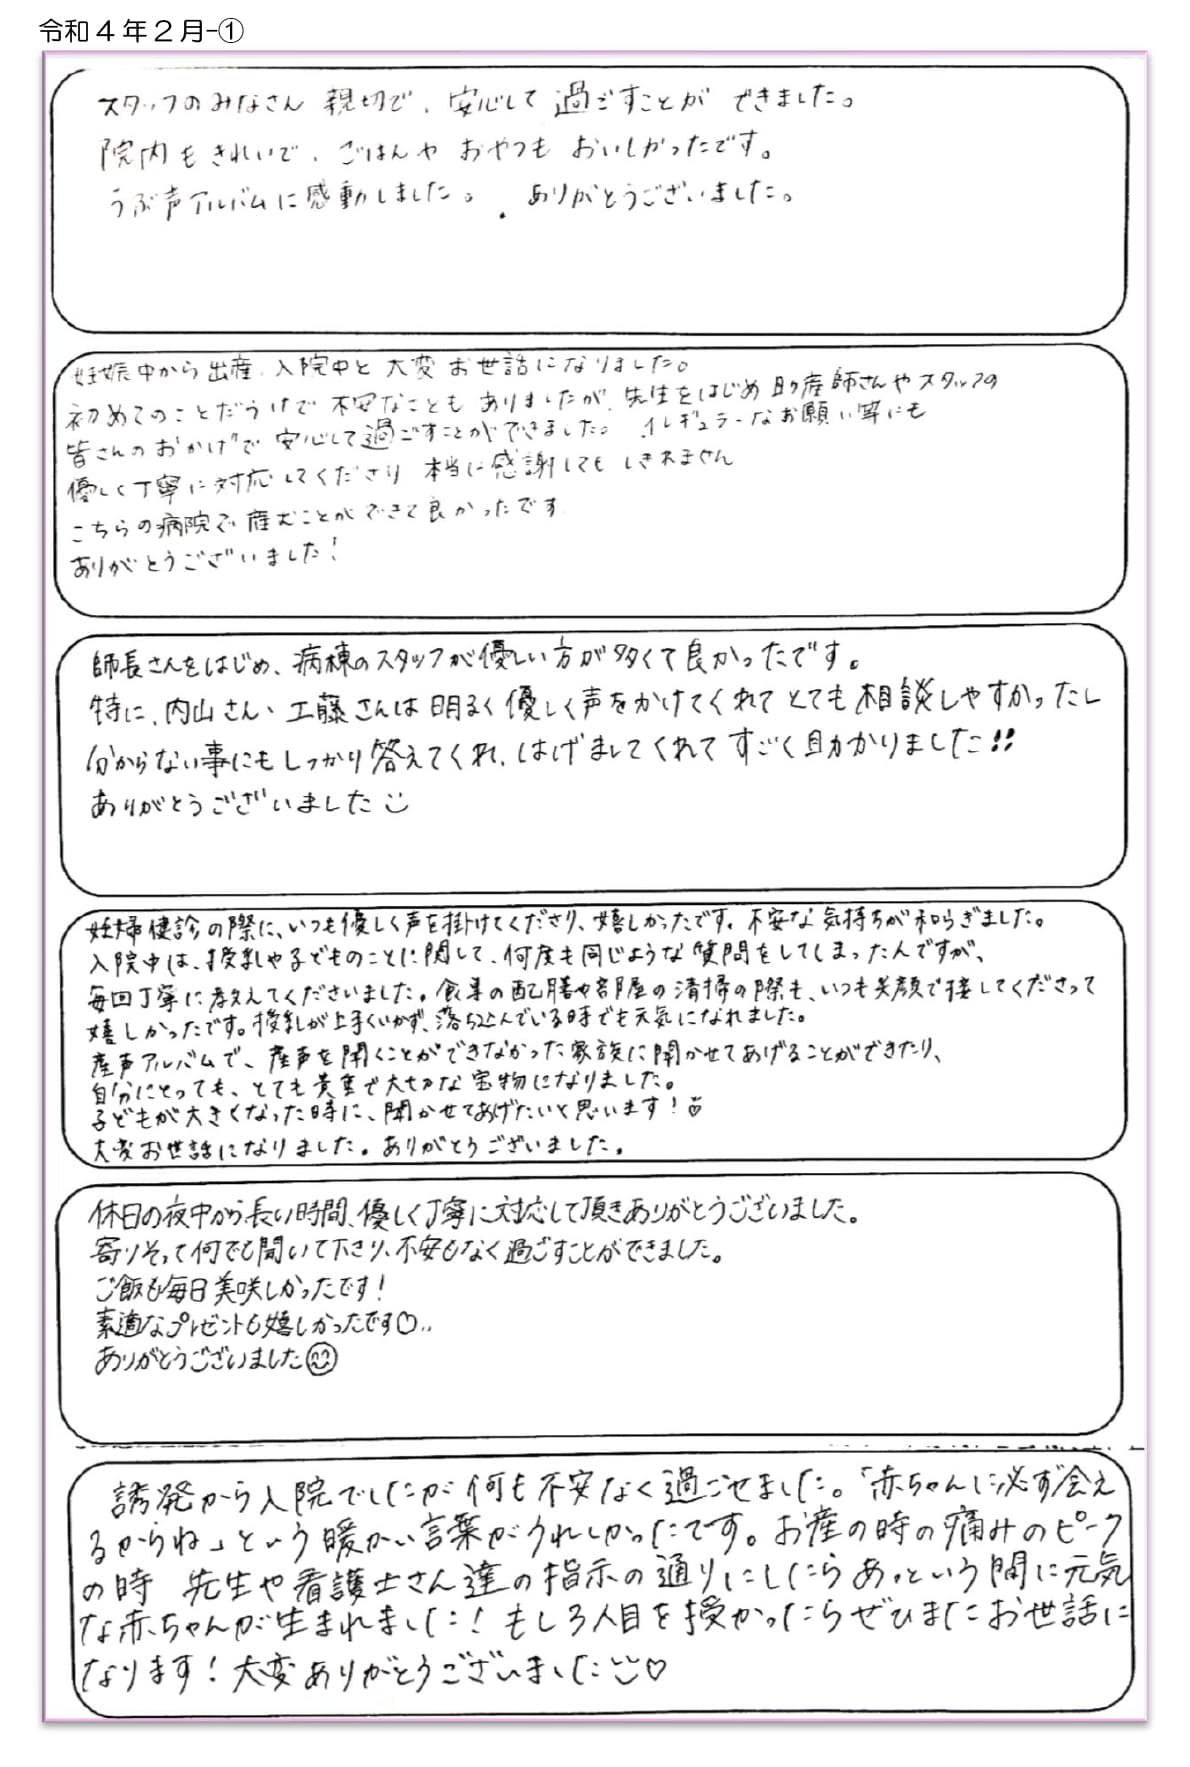 令和４年２月-①
スタッフのみなさん 親切で、安心して 過ごすことが できました。
院内もきれいで、ごはんや おやつも おいしかったです。
うぶ声アルバムに感動しました。 ありがとうございました。
妊娠中から出産、入院中と 大変 お世話になりました。
初めてのことだらけで 不安なことも ありましたが、先生をはじめ 助産師さんやスタッフの
皆さんのおかげで 安心して過ごすことができました。イレギュラーなお願い等にも
優しく丁寧に対応してくださり 本当に感謝してもしきれません
こちらの病院で 産むことができて良かったです
ありがとうございました!
師長さんをはじめ、病棟のスタッフが優しい方が多くて良かったです。
特に、内山さん、工藤さんは明るく優しく声をかけてくれてとても相談しやすかったし
分からない事にもしっかり答えてくれ、はげましてくれてすごく助かりました!!
ありがとうございました
妊婦健診の際に、いつも優しく声を掛けてくださり、嬉しかったです。不安な気持ちが和らぎました。
入院中は、授乳や子どものことに関して、何度も同じような質問をしてしまったんですが、
毎回丁寧に教えてくださいました。食事の配膳や部屋の清掃の際も、いつも笑顔で接してくださって
嬉しかったです。授乳が上手くいかず、落ち込んでいる時でも元気になれました。
産声アルバムで、産声を聞くことができなかった家族に聞かせてあげることができたり、
自分にとっても、とても貴重で大切な宝物になりました。
子どもが大きくなった時に、聞かせてあげたいと思います!
大変お世話になりました。ありがとうございました。
休日の夜中から長い時間、優しく丁寧に対応して頂きありがとうございました。
寄りそって何でも聞いて下さり、不安もなく過ごすことができました。
ご飯も毎日美味しかったです!
素適なプレゼントも嬉しかったです♡..
ありがとうございました☺
誘発から入院でしたが何も不安なく過ごせました。「赤ちゃんに必ず会え
るからね」という暖かい言葉がうれしかったです。お産の時の痛みのピーク
の時 先生や看護士さん達の指示の通りにしたらあっという間に元気
な赤ちゃんが生まれました! もし3人目を授かったらぜひまたお世話に
なります! 大変ありがとうございました♡